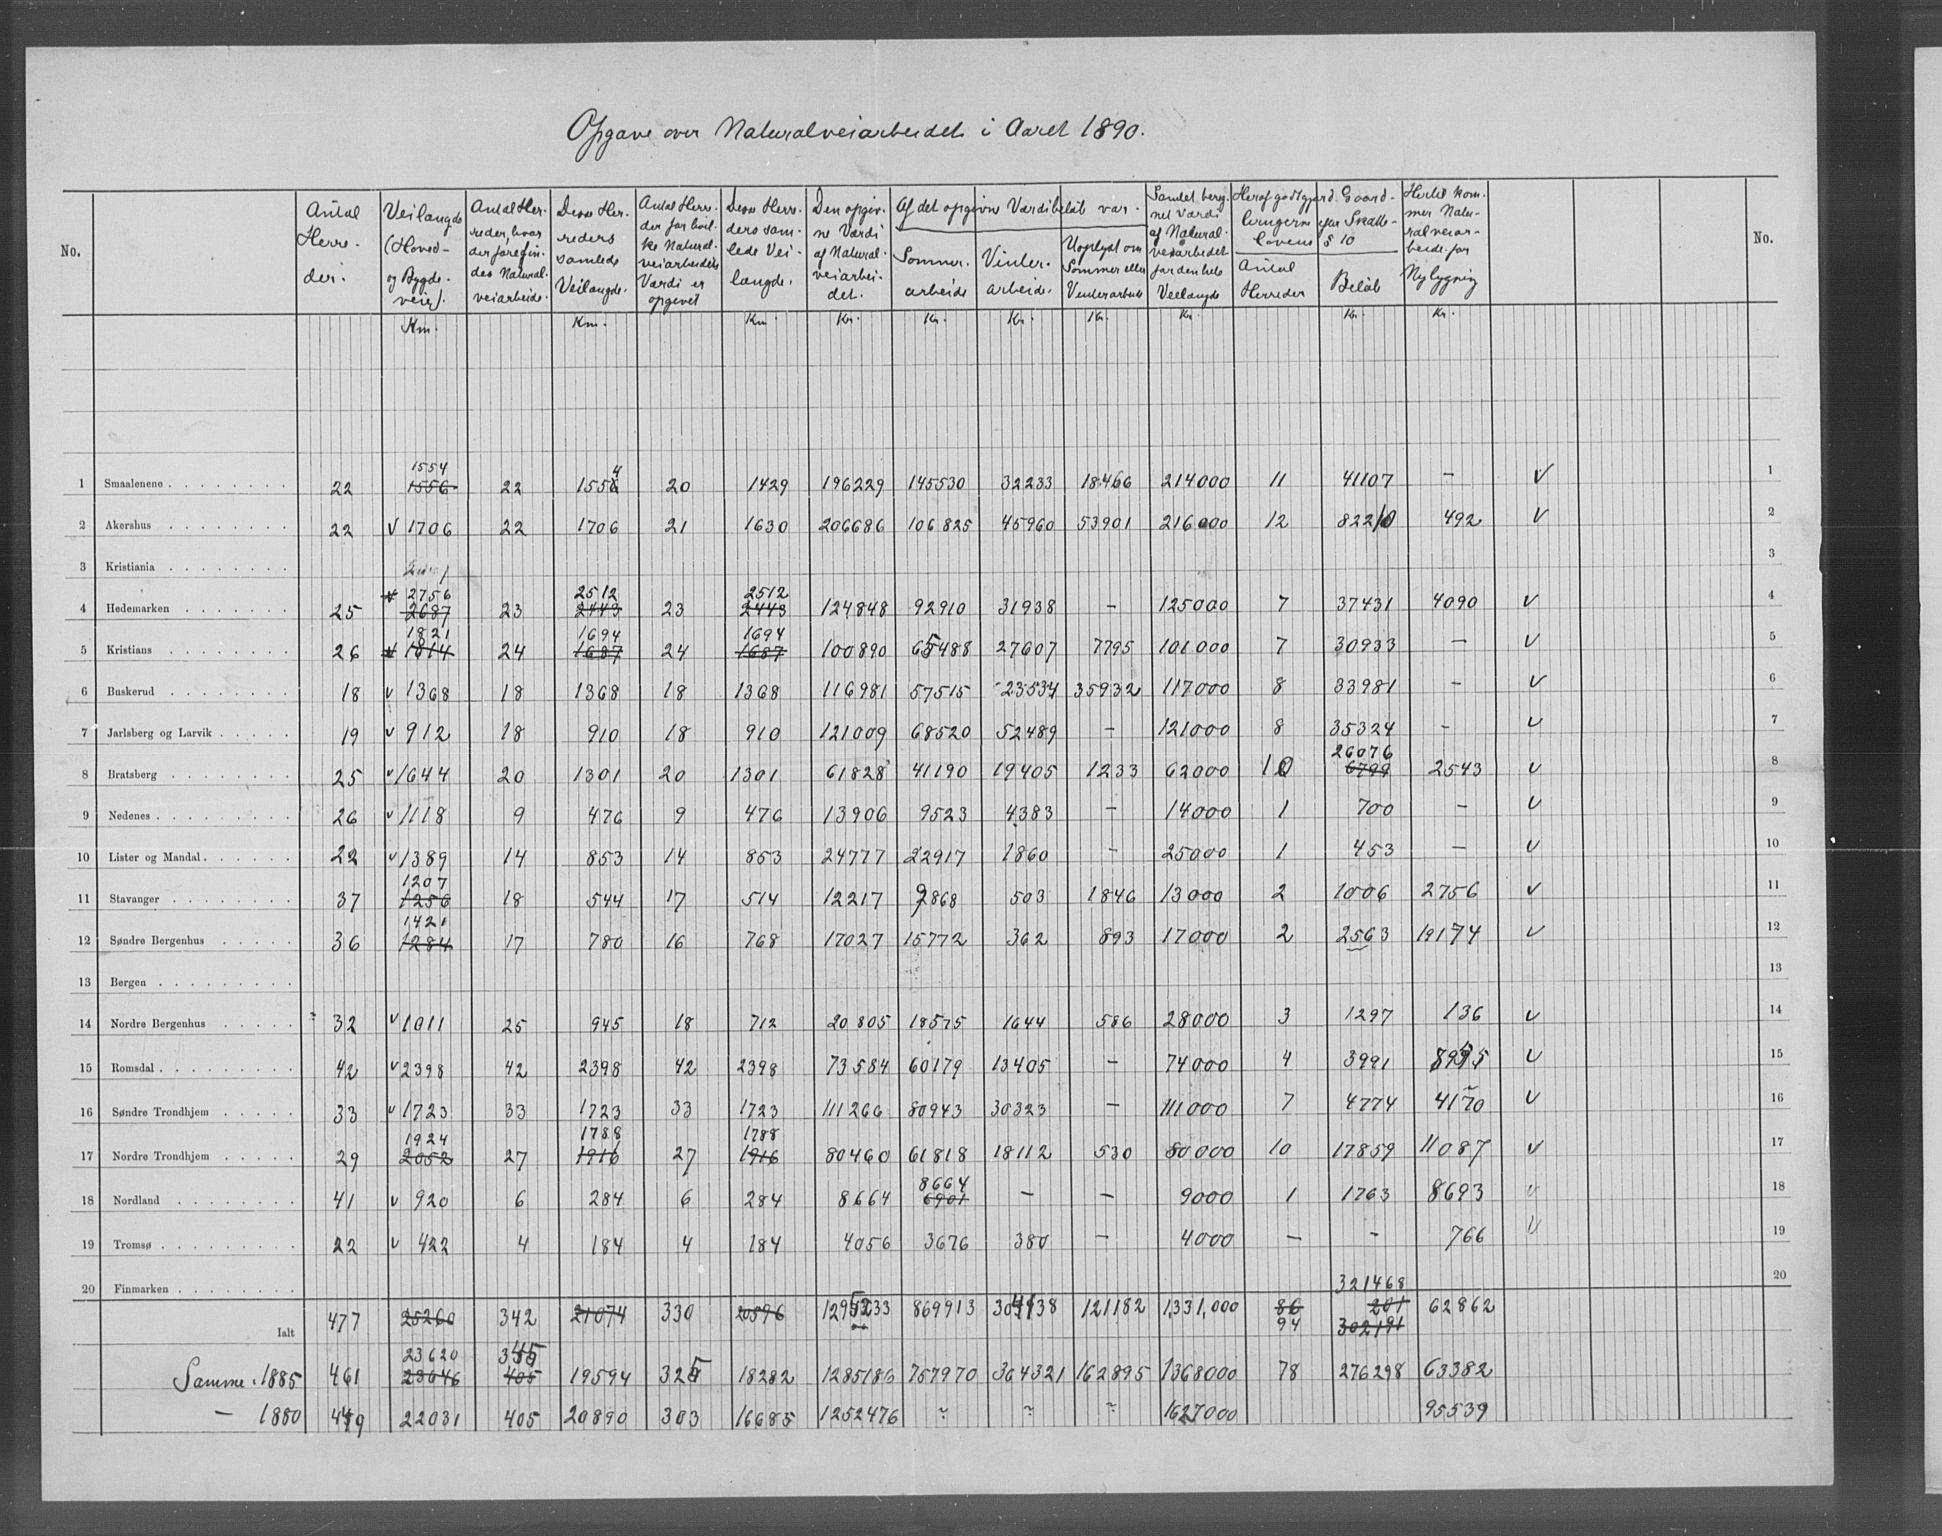 Opgave over Naturalveiarbeidet i Aaret 1890.
No. | | Antal Herre- der. | Veilængde (Hoved- og Bygde- veie). | Antal Her- reder, hvor der foregin- des Natural- veiarbeide. | Disse Her- reders samlede Veilængde. | Antal Herre- der for hvil- ke Natural- veiarbeidets Værdi er opgivet | Disse Herre- ders sam- lede Vei- længde. | Den opgiv- ne Værdi af Natural- veiarbei- det. | Af det opgivne Værdibeløb var. Sommer- arbeide | Vinter- arbeide. | Uoplyst om Sommer eller Vinterarbeide | Samlet bereg- net Værdi af Natural- veiarbeidet for den hele Veilængde | Heraf godtgjord Gaard- brugerne for Skatte- lovens § 10 Antal Herreder | Beløb | Hertil kom- mer Natu- ralveiar- beide for Nylægning | No.
Km. | Km. | Km. | Kr. | Kr. | Kr. | Kr. | Kr. | Kr. | Kr.
1 Smaalenene | 22 | 1554 1556 | 22 | 1556 4 | 20 | 1429 | 196229 | 145530 | 32233 | 18466 | 214000 | 11 | 41107 | — | V | 1
2 Akershus | 22 | V 1706 | 22 | 1706 | 21 | 1630 | 206686 | 106825 | 45960 | 53901 | 216000 | 12 | 82210 | 492 | V | 2
3 Kristiania | 3
4 Hedemarken | 25 | 2756 2687 | 23 | 2512 2443 | 23 | 2512 2443 | 124848 | 92910 | 31938 | — | 125000 | 7 | 37431 | 4090 | V | 4
5 Kristians | 26 | 1821 1814 | 24 | 1694 1687 | 24 | 1694 1687 | 100890 | 65488 | 27607 | 7795 | 101000 | 7 | 30933 | — | V | 5
6 Buskerud | 18 | V 1368 | 18 | 1368 | 18 | 1368 | 116981 | 57515 | 23534 | 35932 | 117000 | 8 | 33981 | — | V | 6
7 Jarlsberg og Larvik | 19 | V 912 | 18 | 910 | 18 | 910 | 121009 | 68520 | 52489 | — | 121000 | 8 | 35324 | — | V | 7
8 Bratsberg | 25 | V 1644 | 20 | 1301 | 20 | 1301 | 61828 | 41190 | 19405 | 1233 | 62000 | 10 | 26076 6799 | 2543 | V | 8
9 Nedenes | 26 | V 1118 | 9 | 476 | 9 | 476 | 13906 | 9523 | 4383 | — | 14000 | 1 | 700 | — | V | 9
10 Lister og Mandal | 22 | V 1389 | 14 | 853 | 14 | 853 | 24777 | 22917 | 1860 | — | 25000 | 1 | 453 | — | V | 10
11 Stavanger | 37 | 1207 1256 | 18 | 544 | 17 | 514 | 12217 | 9868 | 503 | 1846 | 13000 | 2 | 1006 | 2756 | V | 11
12 Søndre Bergenhus | 36 | 1421 1284 | 17 | 780 | 16 | 768 | 17027 | 15772 | 362 | 893 | 17000 | 2 | 2563 | 19174 | V | 12
13 Bergen | 13
14 Nordre Bergenhus | 32 | V 1011 | 25 | 945 | 18 | 712 | 20805 | 18575 | 1644 | 586 | 28000 | 3 | 1297 | 136 | V | 14
15 Romsdal | 42 | V 2398 | 42 | 2398 | 42 | 2398 | 73584 | 60179 | 13405 | — | 74000 | 4 | 3991 | | V | 15
16 Søndre Trondhjem | 33 | V 1723 | 33 | 1723 | 33 | 1723 | 111266 | 80943 | 30323 | — | 111000 | 7 | 4774 | 4170 | V | 16
17 Nordre Trondhjem | 29 | 1924 2052 | 27 | 1788 1916 | 27 | 1788 1916 | 80460 | 61818 | 18112 | 530 | 80000 | 10 | 17859 | 11087 | V | 17
18 Nordland | 41 | V 920 | 6 | 284 | 6 | 284 | 8664 | 8664 6901 | — | — | 9000 | 1 | 1763 | 8693 | V | 18
19 Tromsø | 22 | V 422 | 4 | 184 | 4 | 184 | 4056 | 3676 | 380 | — | 4000 | — | — | 766 | V | 19
20 Finmarken | 321468 | 20
Ialt | 477 | 25260 | 342 | 21074 | 330 | 20596 | | 869913 | | 121182 | 1,331,000 | 86 94 | 201 302191 | 62862
Samme 1885 | 461 | 23620 23646 | 405 | 19594 | 325 | 18282 | 1285186 | 757970 | 364321 | 162895 | 1368000 | 78 | 276298 | 63382
— 1880 | 449 | 22031 | 405 | 20890 | 303 | 16685 | 1252476 | ~ | ~ | ~ | 1627000 | 95539